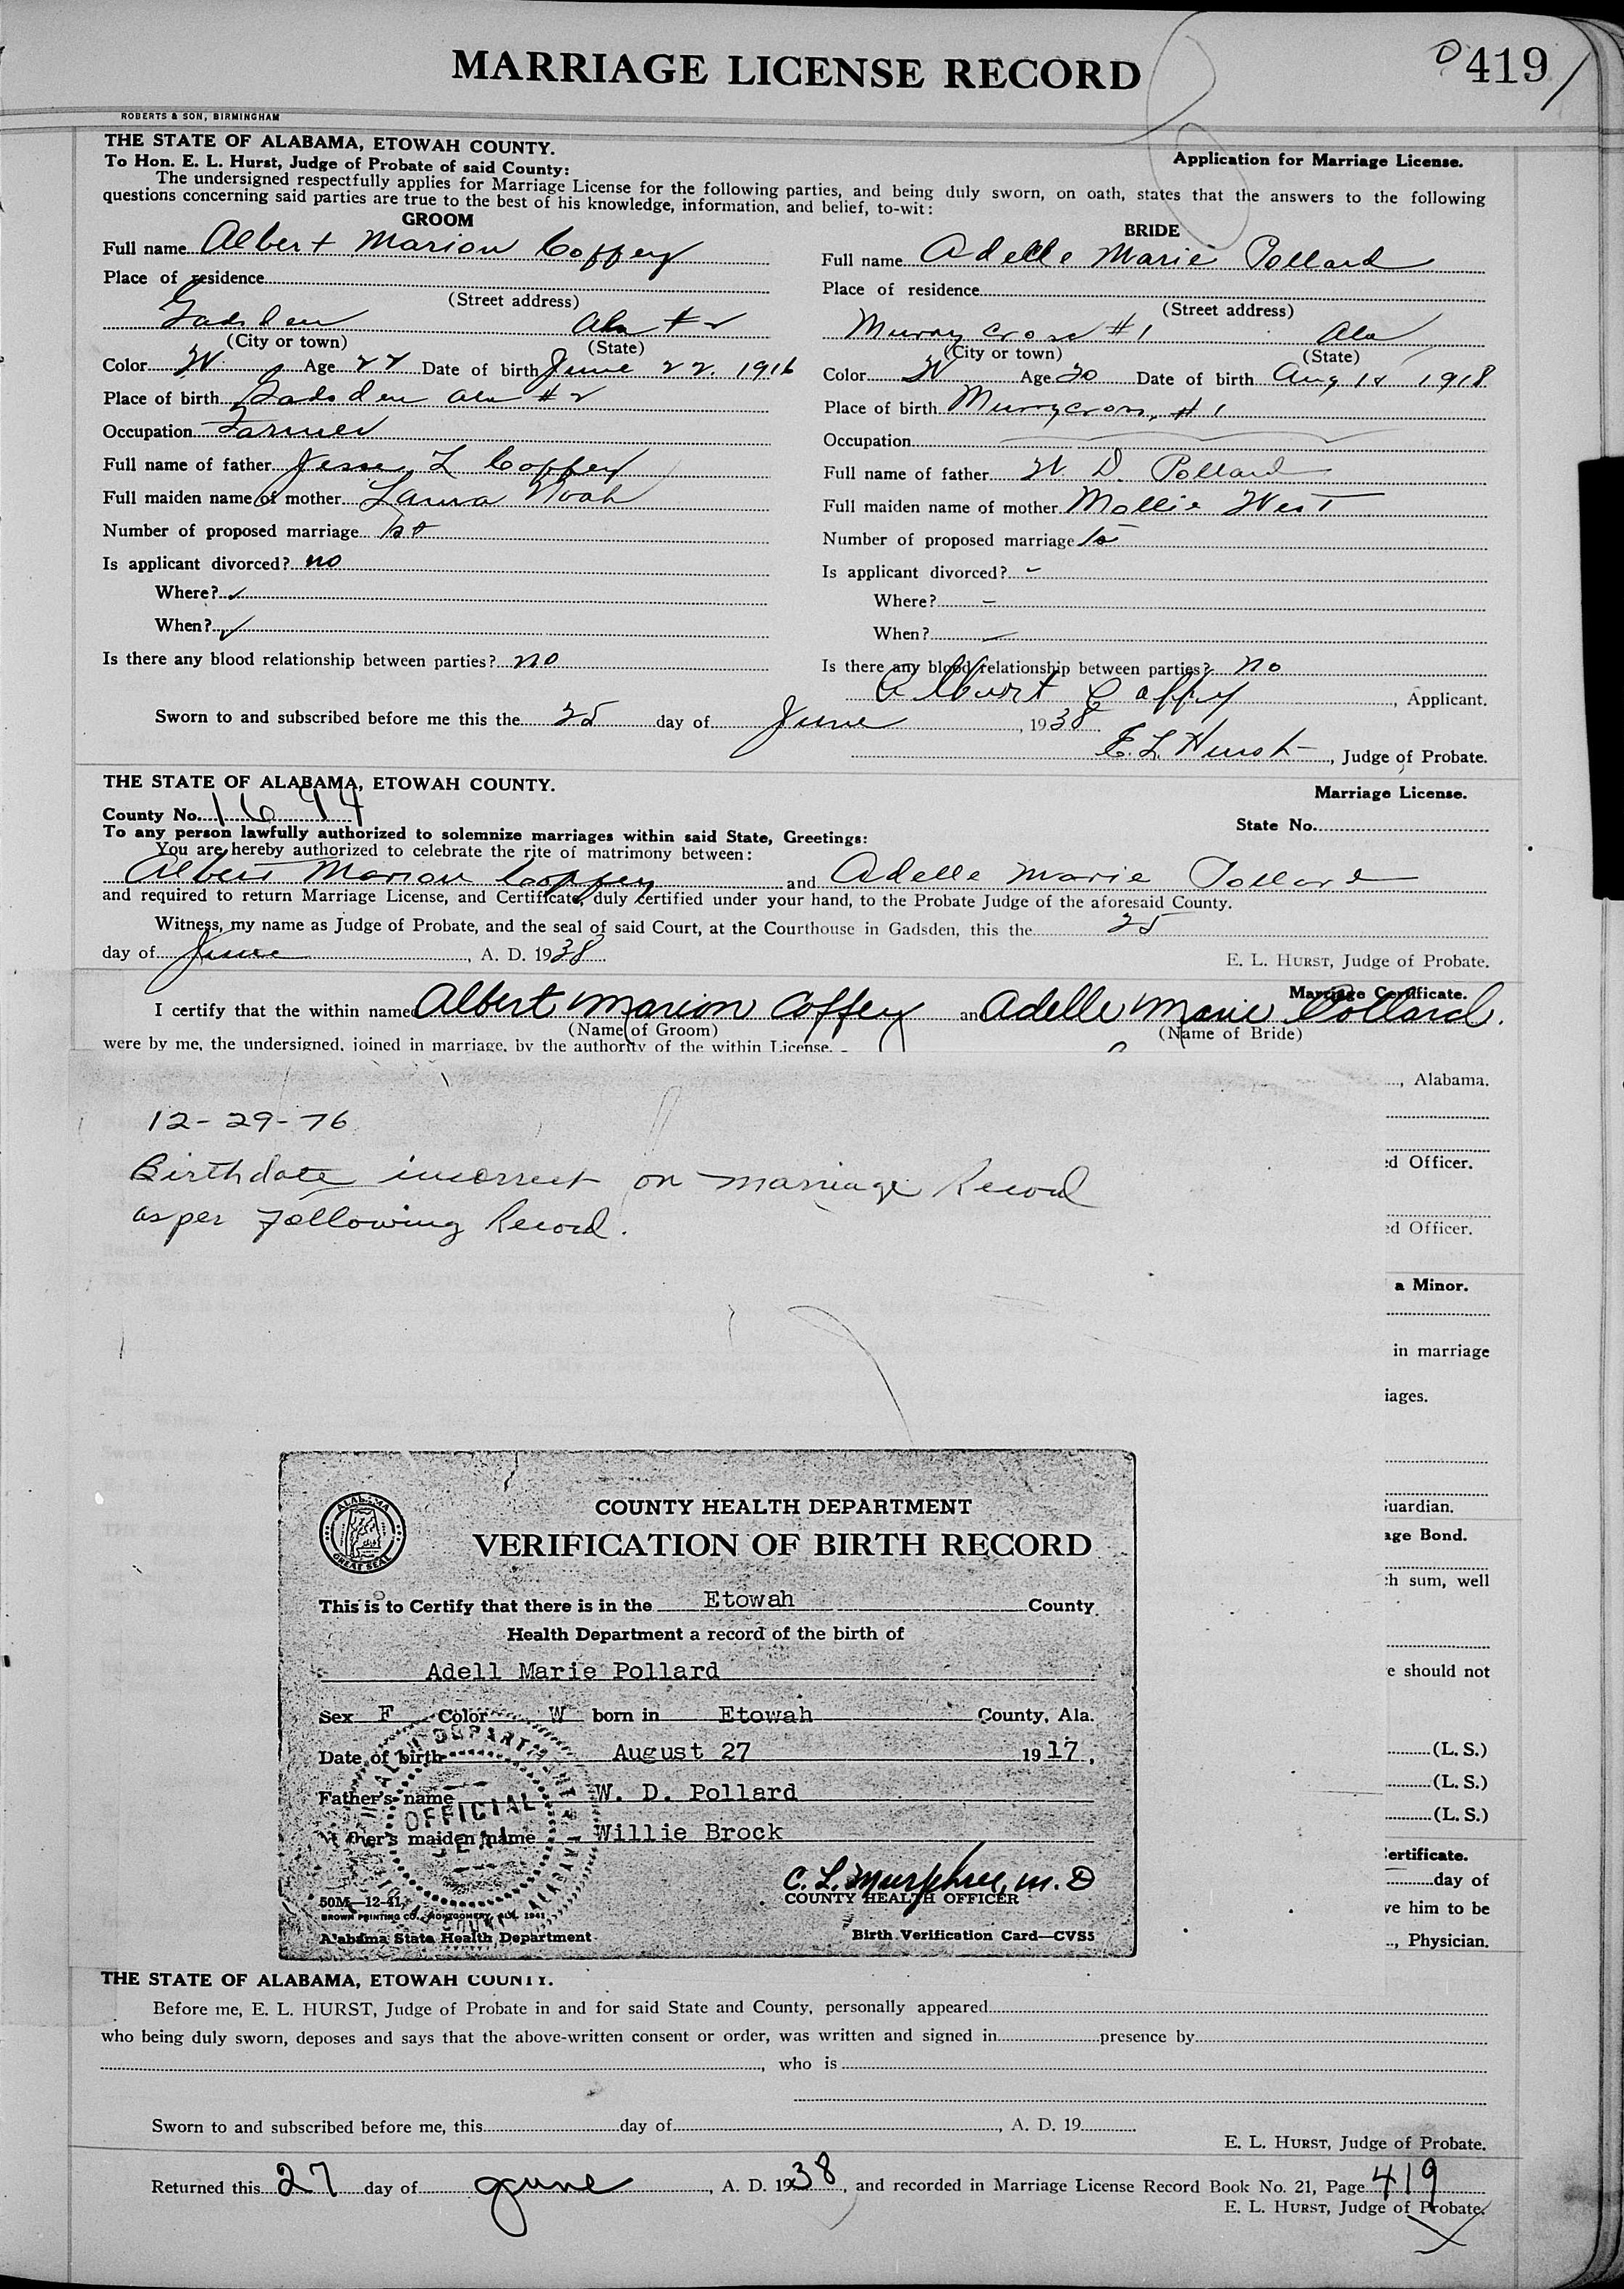 MARRIAGE LICENSE RECORD
419
ROBERTS & SON, BIRMINGHAM
THE STATE OF ALABAMA, ETOWAH COUNTY.
To Hon. E. L. Hurst, Judge of Probate of said County:
Application for Marriage License.
The undersigned respectfully applies for Marriage License for the following parties, and being duly sworn, on oath, states that the answers to the following
questions concerning said parties are true to the best of his knowledge, information, and belief, to-wit:
GROOM
Full name Albert Marion Coffey
Place of residence
(Street address)
Gadsden Ala # 2
(City or town) (State)
Color W Age 22 Date of birth June 22. 1916
Place of birth Gadsden Ala # 2
Occupation Farmer
Full name of father Jesse L Coffey
Full maiden name of mother Laura Noah
Number of proposed marriage 1st
Is applicant divorced? no
Where? ✓
When? ✓
Is there any blood relationship between parties? no
BRIDE
Full name Adelle Marie Pollard
Place of residence
(Street address)
Murray Cross # 1 Ala
(City or town) (State)
Color W Age 20 Date of birth Aug 1918
Place of birth Murrycross, # 1
Occupation
Full name of father W. D. Pollard
Full maiden name of mother Mollie West
Number of proposed marriage 1s
Is applicant divorced? -
Where? -
When? -
Is there any blood relationship between parties? no
Albert Coffey, Applicant.
Sworn to and subscribed before me this the 25 day of June, 1938
E. L. Hurst, Judge of Probate.
THE STATE OF ALABAMA, ETOWAH COUNTY.
Marriage License.
County No. 1644
State No.
To any person lawfully authorized to solemnize marriages within said State, Greetings:
You are hereby authorized to celebrate the rite of matrimony between:
Albert Marion Coffey and Adelle Marie Pollard
and required to return Marriage License, and Certificate, duly certified under your hand, to the Probate Judge of the aforesaid County.
Witness, my name as Judge of Probate, and the seal of said Court, at the Courthouse in Gadsden, this the 25
day of June, A. D. 1938
E. L. HURST, Judge of Probate.
Marriage Certificate.
I certify that the within named Albert Marion Coffey and Adelle Marie Pollard.
(Name of Groom) (Name of Bride)
were by me, the undersigned, joined in marriage, by the authority of the within License.
, Alabama.
12-29-76
ed Officer.
Birthdate incorrect on marriage Record
as per Following Record.
ed Officer.
a Minor.
in marriage
iages.
COUNTY HEALTH DEPARTMENT
VERIFICATION OF BIRTH RECORD
ALABAMA
GREAT SEAL
This is to Certify that there is in the Etowah County
Health Department a record of the birth of
Adell Marie Pollard
Sex F Color W born in Etowah County, Ala.
Date of birth August 27 1917,
Father's name W. D. Pollard
ther's maiden name Willie Brock
OFFICIAL
C. L. Murphree, M. D
COUNTY HEALTH OFFICER
50M—12-41,
BROWN PRINTING CO., MONTGOMERY, ALA. 1941
Alabama State Health Department
Birth Verification Card—CVS5
uardian.
age Bond.
ch sum, well
e should not
(L. S.)
(L. S.)
(L. S.)
ertificate.
day of
ve him to be
, Physician.
THE STATE OF ALABAMA, ETOWAH COUNTY.
Before me, E. L. HURST, Judge of Probate in and for said State and County, personally appeared
who being duly sworn, deposes and says that the above-written consent or order, was written and signed in presence by
, who is
Sworn to and subscribed before me, this day of, A. D. 19
E. L. HURST, Judge of Probate.
Returned this 27 day of June, A. D. 1938, and recorded in Marriage License Record Book No. 21, Page 419
E. L. HURST, Judge of Probate.